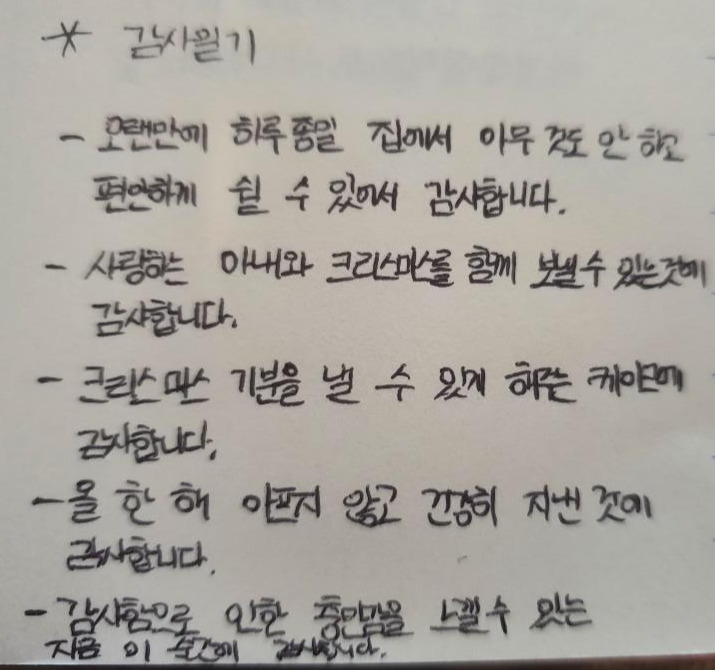 * 감사일기
- 오랜만에 하루종일 집에서 아무 것도 안 하고
편안하게 쉴 수 있어서 감사합니다.
- 사랑하는 아내와 크리스마스를 함께 보낼 수 있는것에
감사합니다.
- 크리스마스 기분을 낼 수 있게 해주는 케이크에
감사합니다.
- 올 한 해 아프지 않고 건강히 지낸 것에
감사합니다.
- 감사함으로 인한 충만감을 느낄 수 있는
지금 이 순간에 감사합니다.